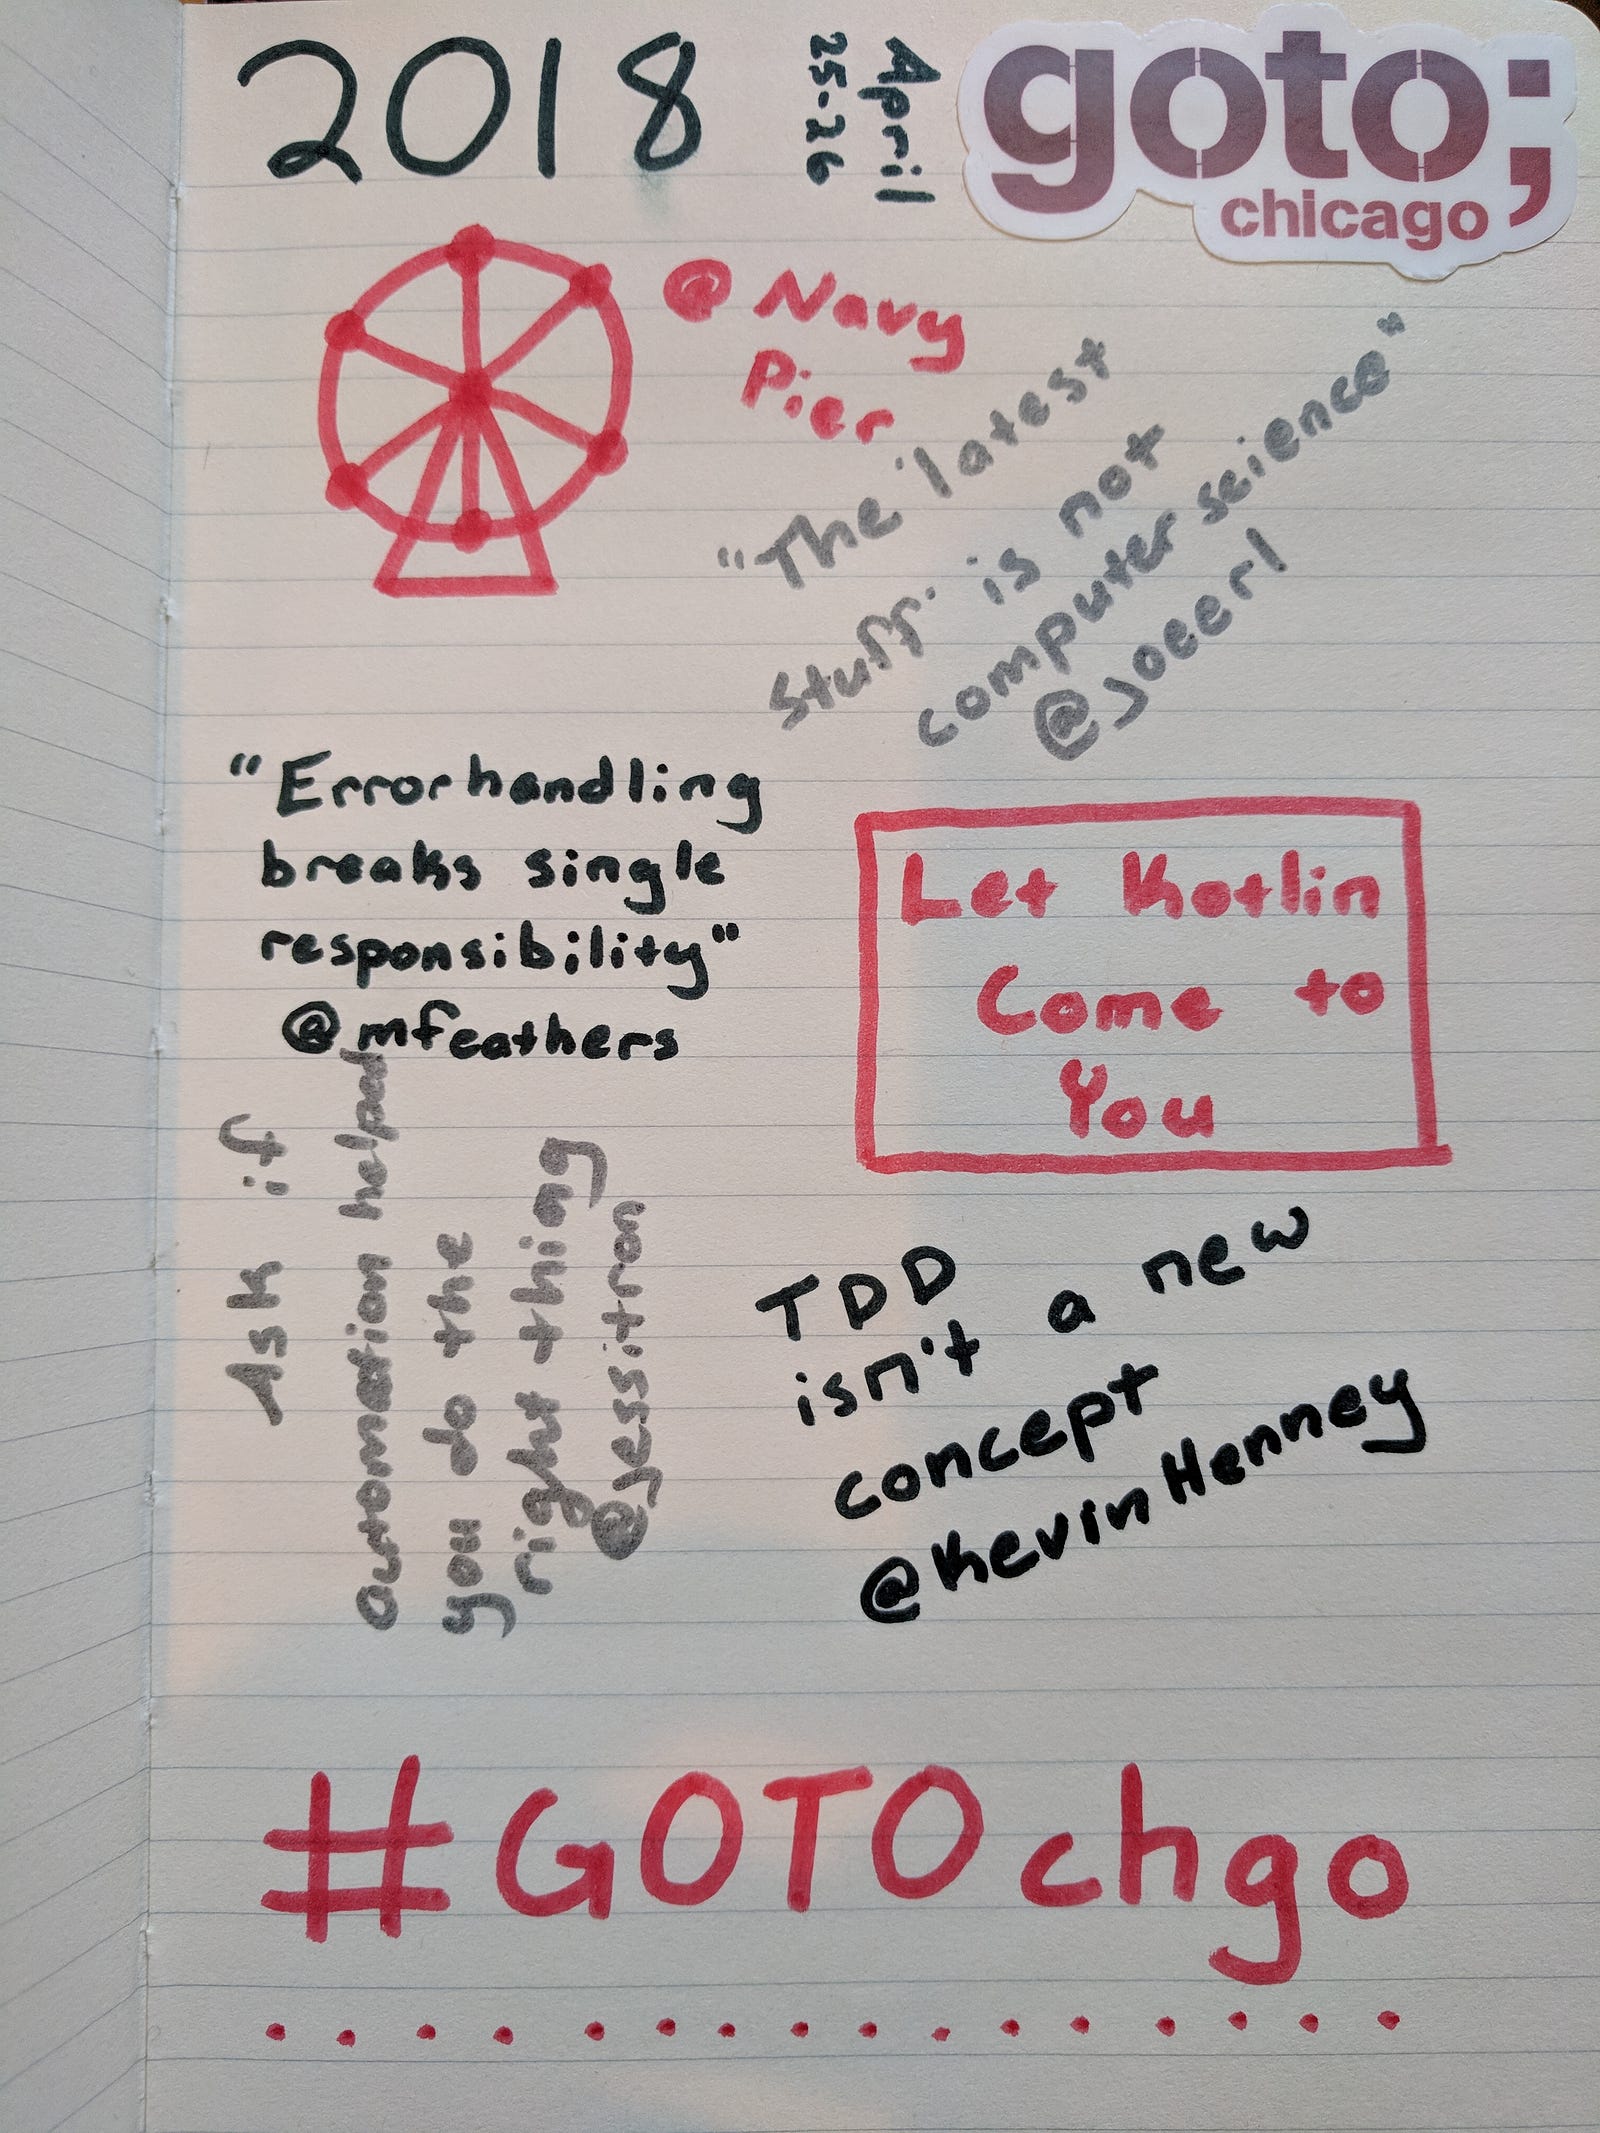 2018
April
25-26
goto;
chicago
@ Navy
Pier
"The latest
stuff is not
computer science"
@joeerl
"Errorhandling
breaks single
responsibility"
@mfeathers
Let Kotlin
Come to
You
Ask if
automation helped
you do the
right thing
@jessitron
TDD
isn't a new
concept
@KevinHenney
#GOTOchgo